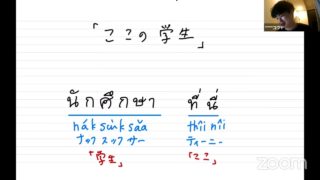 「ここの学生」
นักศึกษา ที่ นี่
nák sʉ̀k sǎa thîi nîi
ナック スック サー ティー ニー
「学生」 「ここ」
zoom